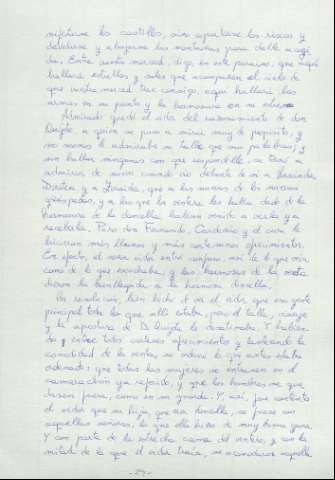 sufrirse los castillos, sino apartarse los riscos y
dividirse y abajarse las montañas para dalle acogi-
da. Entre vuestra merced, digo, en este paraíso, que aquí
hallará estrellas y soles que acompañen el cielo de
que vuestra merced trae consigo; aquí hallará las
armas en su punto y la hermosura en su extremo
Admirado quedó el oidor del razonamiento de don
Quijote, a quien se puso a mirar muy de propósito, y
no menos le admiraba su talle que sus palabras; y
sin hallar ningunas con que respondelle, se tornó a
admirar de nuevo cuando vio delante de sí a Luscinda,
Dorotea y a Zoraida, que a las nuevas de los nuevos
güéspedes, y a las que la ventera les había dado de la
hermosura de la doncella, habían venido a verla y a
recebirla. Pero don Fernando, Cardenio y el cura le
hicieron más llanos y más cortesanos ofrecimientos.
En efecto, el oidor entró confuso, así de lo que veía
como de lo que escuchaba, y las hermosas de la venta
dieron la bienllegada a la hermosa doncella.
En resolución, bien echó de ver el oidor que era gente
principal toda la que allí estaba; pero el talle, visaje
y la apostura de D. Quijote le desatinaba. Y habien-
do pasado todos corteses ofrecimientos y tanteado la
comodidad de la venta, se ordenó lo que antes estaba
ordenado: que todas las mujeres se entrasen en el
camaranchón ya referido, y que los hombres se que
dasen fuera, como en su guarda. Y así, fue contento
el oidor que su hija, que era la doncella, se fuese con
aquellas señoras, lo que ella hizo de muy buena gana.
Y con parte de la estrecha cama del ventero, y con la
mitad de la que el oidor traía, se acomodaron aquella
-29-